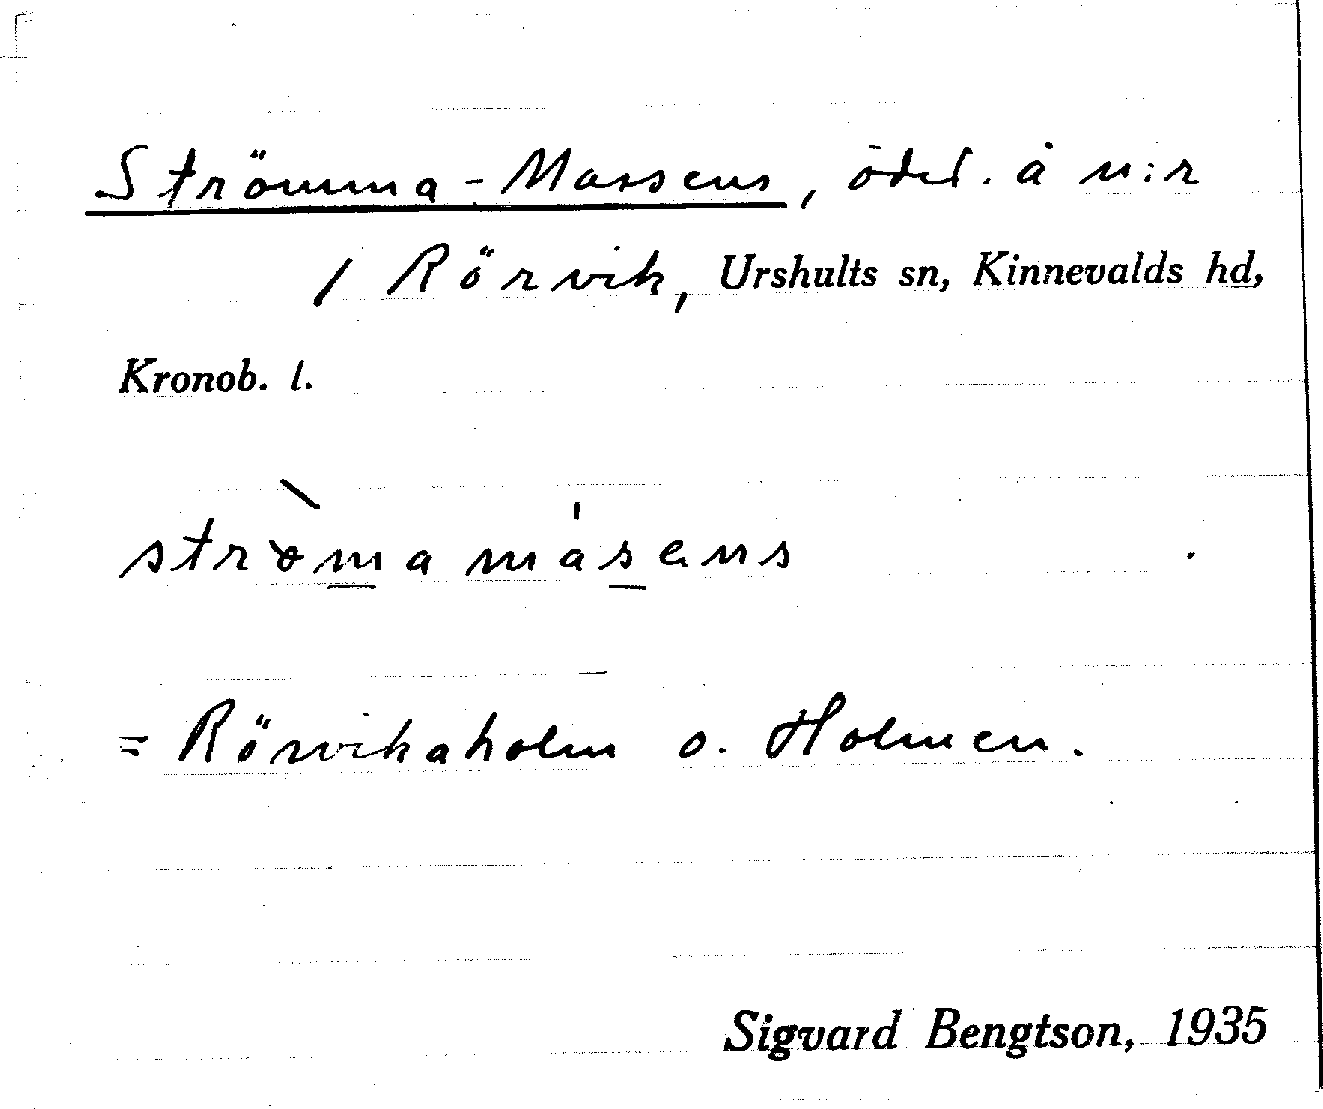 Strömma-Massens, ödel. å n:r
1 Rörvik, Urshults sn, Kinnevalds hd,
Kronob. l.
strømamasens
= Rörvikaholm o. Holmen.
Sigvard Bengtson, 1935